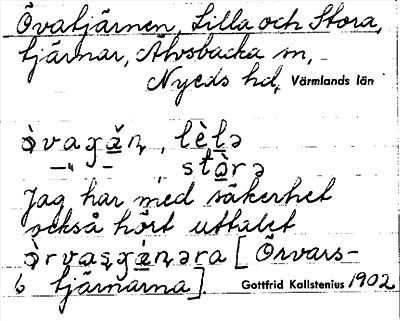 Övatjärnen, Lilla och Stora,
tjärnar, Älvsbacka sn,
Nyeds hd, Värmlands län
òvaçæ̌ṇ, lèlə
—„— , stòrə
Jag har med säkerhet
också hört uttalet
òrvasçæ̌ṇəra [Örvars-
tjärnarna]. Gottfrid Kallstenius 1902